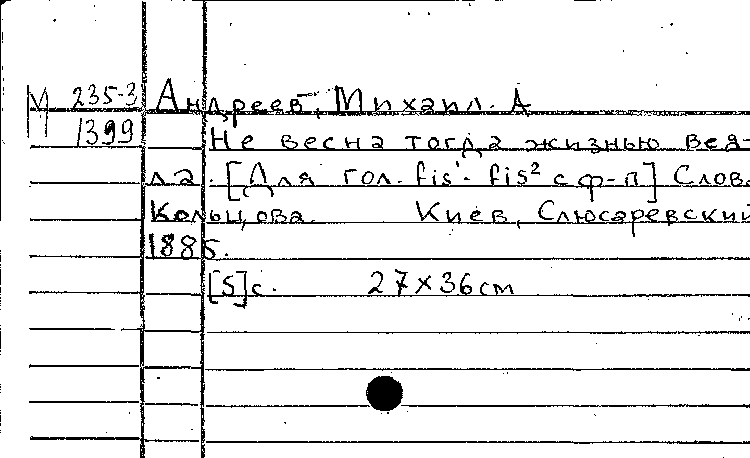 М 235-3 Андреев, Михаил. А
1399 Не весна тогда жизнью вея-
ла. [Для гол. fis¹- fis² с ф-п] Слов.
Кольцова. Киев, Слюсаревский
1885.
[5]с. 27×36cm